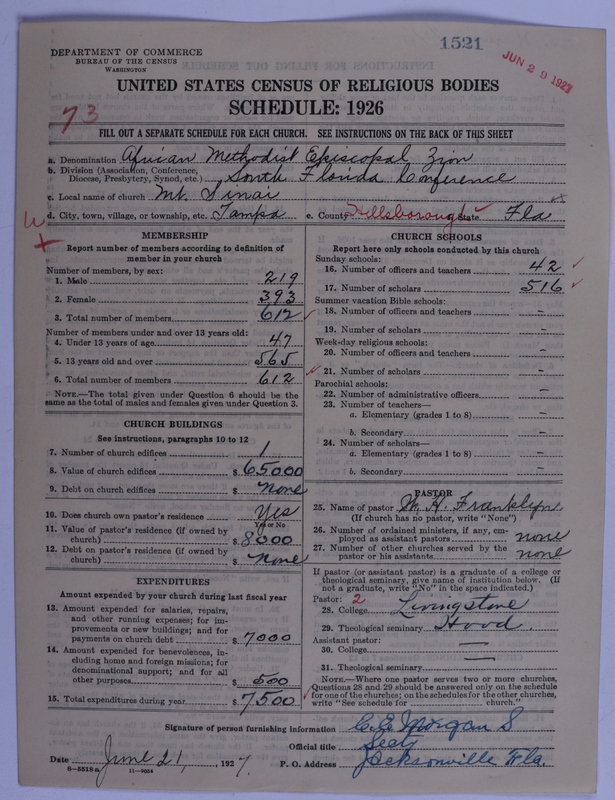 1521
JUN 29 1927
DEPARTMENT OF COMMERCE
BUREAU OF THE CENSUS
WASHINGTON
UNITED STATES CENSUS OF RELIGIOUS BODIES
SCHEDULE: 1926
73
FILL OUT A SEPARATE SCHEDULE FOR EACH CHURCH. SEE INSTRUCTIONS ON THE BACK OF THIS SHEET
a. Denomination African Methodist Episcopal Zion
b. Division (Association, Conference, Diocese, Presbytery, Synod, etc.) South Florida Conference
c. Local name of church Mt. Sinai
d. City, town, village, or township, etc. Tampa e. County Hillsborough State Fla
MEMBERSHIP
Report number of members according to definition of
member in your church
Number of members, by sex:
1. Male 219
2. Female 393
3. Total number of members 612
Number of members under and over 13 years old:
4. Under 13 years of age 47
5. 13 years old and over 565
6. Total number of members 612
NOTE.—The total given under Question 6 should be
same as the total of males and females given under Question 3.
CHURCH BUILDINGS
See instructions, paragraphs 10 to 12
7. Number of church edifices 1
8. Value of church edifices $ 65000
9. Debt on church edifices $ None
10. Does church own pastor's residence Yes
Yes or No
11. Value of pastor's residence (if owned by
church) $ 8000
12. Debt on pastor's residence (if owned by
church) $ None
EXPENDITURES
Amount expended by your church during last fiscal year
13. Amount expended for salaries, repairs,
and other running expenses; for im-
provements or new buildings; and for
payments on church debt $ 7000
14. Amount expended for benevolences, in-
cluding home and foreign missions; for
denominational support; and for all
other purposes $ 500
15. Total expenditures during year $ 7500
CHURCH SCHOOLS
Report here only schools conducted by this church
Sunday schools:
16. Number of officers and teachers 42
17. Number of scholars 516
Summer vacation Bible schools:
18. Number of officers and teachers -
19. Number of scholars -
Week-day religious schools:
20. Number of officers and teachers -
21. Number of scholars -
Parochial schools:
22. Number of administrative officers -
23. Number of teachers—
a. Elementary (grades 1 to 8) -
b. Secondary -
24. Number of scholars—
a. Elementary (grades 1 to 8) -
b. Secondary -
PASTOR
25. Name of pastor M. H. Franklyn
(If church has no pastor, write "None")
26. Number of ordained ministers, if any, em-
ployed as assistant pastors none
27. Number of other churches served by the
pastor or his assistants none
If pastor (or assistant pastor) is a graduate of a college or
theological seminary, give name of institution below. (If
not a graduate, write "No" in the space indicated.)
Pastor: 2
28. College Livingstone
29. Theological seminary Hood.
Assistant pastor:
30. College —
31. Theological seminary —
NOTE.—Where one pastor serves two or more churches,
Questions 28 and 29 should be answered only on the schedule
for one of the churches; on the schedules for the other churches,
write "See schedule for church."
Signature of person furnishing information C. E. Morgan S
Official title Secty
Date June 21, 1927. P. O. Address Jacksonville Fla.
8—5518a 11—9064